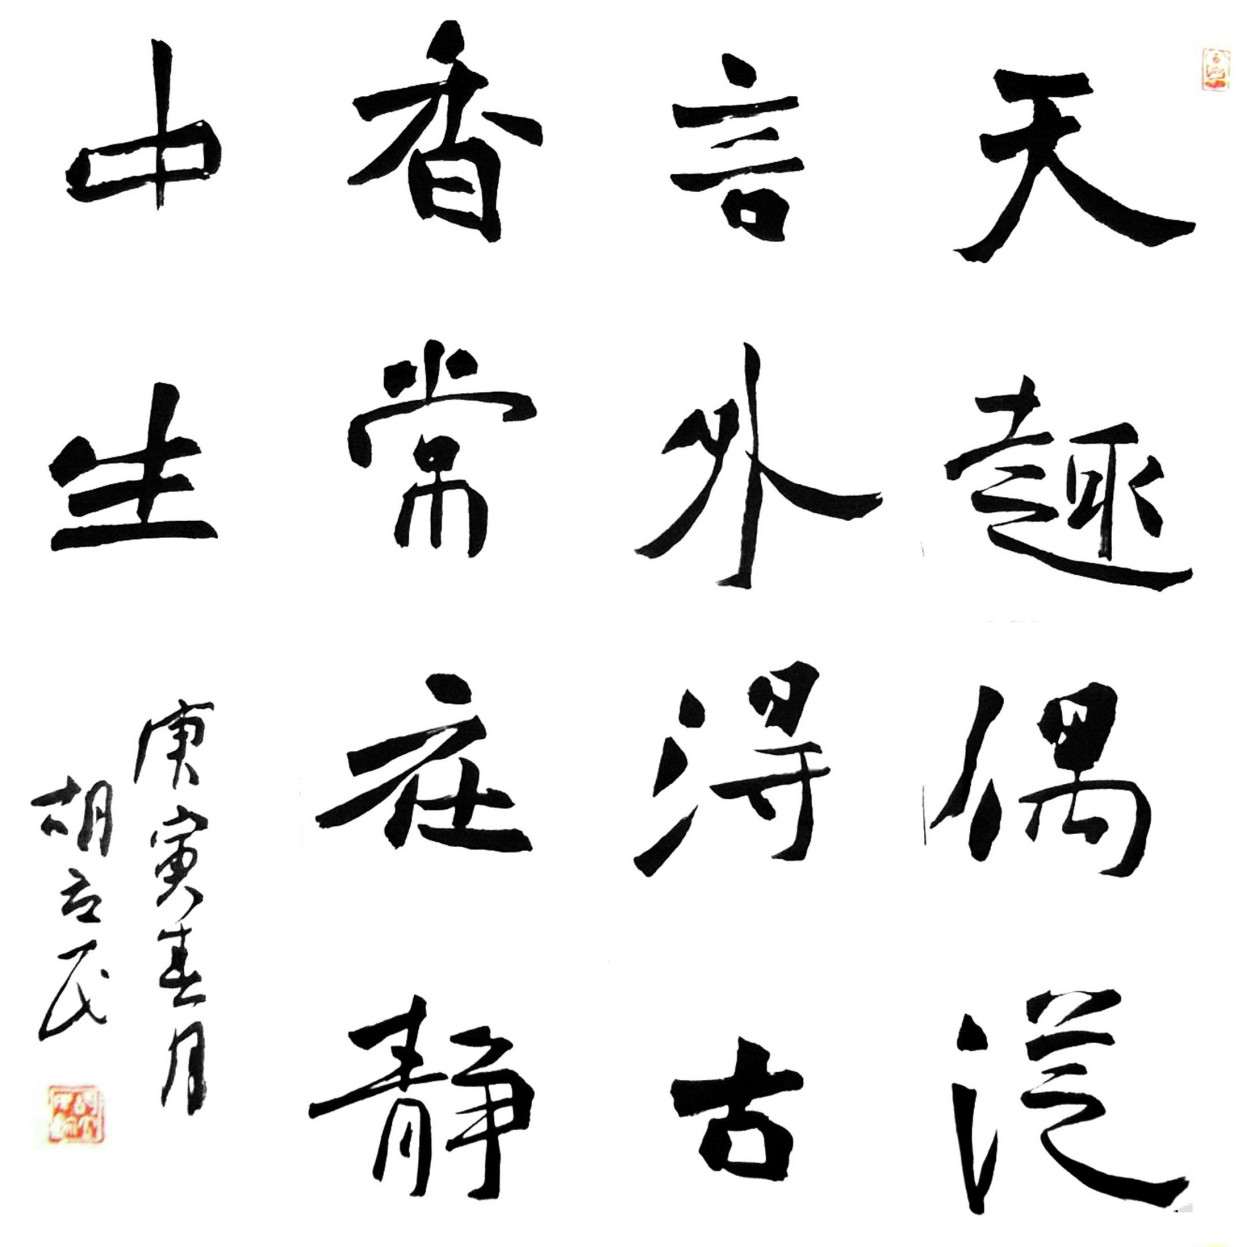 天趣偶從
言外得古
香常在靜
中生
庚寅春月
胡立民